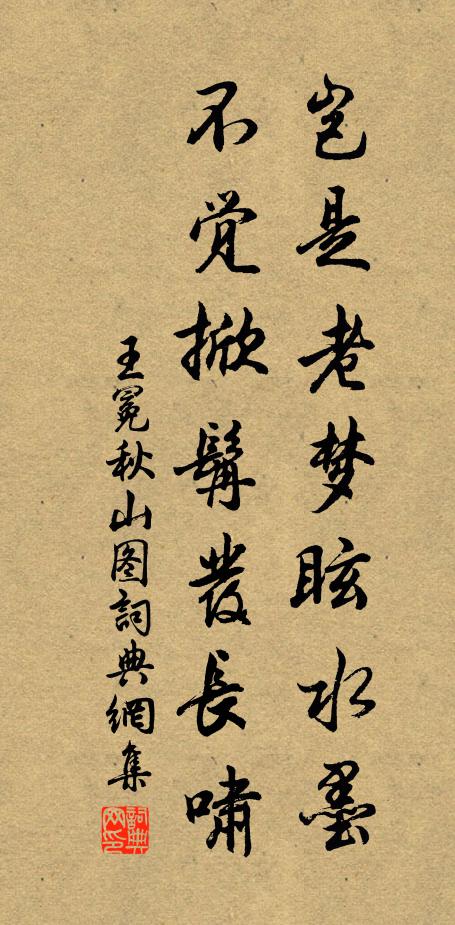 岂是老梦眩水墨
不觉掀髯發長嘯
王冕秋山图詞典網集
詞典网印